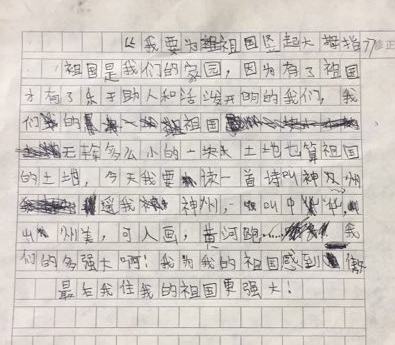 《我要为祖国竖起大拇指》修正
祖国是我们的家园，因为有了祖国
才有了乐于助人和活泼开朗的我们，我
们的一块祖国
无论多么小的一块土地也算祖国
的土地，今天我要读一首诗叫神州
遥我神州，叫中华，
出州美，可入画，黄河跑……我
们的多强大啊！我为我的祖国感到傲
最后我住我的祖国更强大！